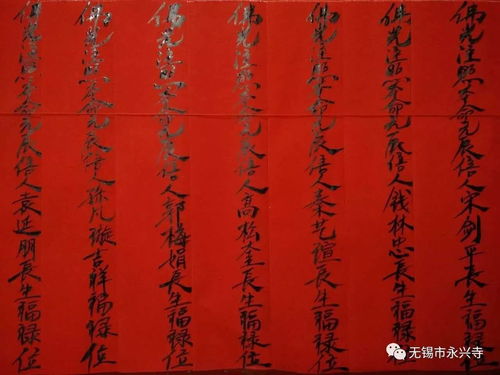 佛光注照本命元辰信人宋剑平長生福禄位
佛光注照本命元辰信人钱林忠長生福禄位
佛光注照本命元辰信人秦艺瑄長生福禄位
佛光注照本命元辰信人高松奎長生福禄位
佛光注照本命元辰信人郭梅娟長生福禄位
佛光注照本命元辰信人孫凡璇吉祥福禄位
佛光注照本命元辰信人袁延朋長生福禄位
无锡市永兴寺